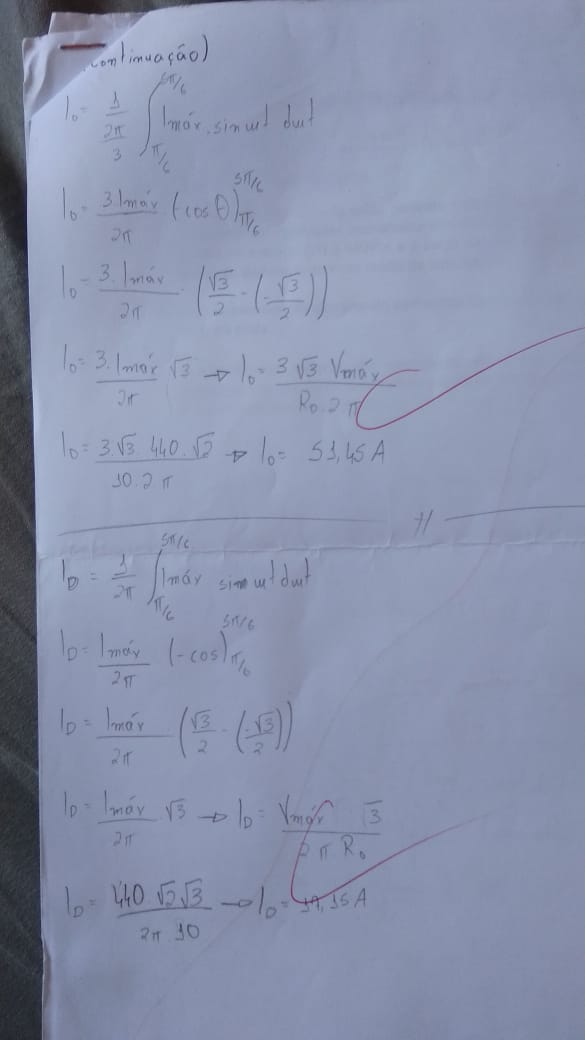 (continuação)
I₀ = 1/(2π/3) ∫_{π/6}^{5π/6} Imáx. sin wt dwt
I₀ = 3.Imáx/2π (-cos θ)_{π/6}^{5π/6}
I₀ = 3.Imáx/2π (√3/2 - (-√3/2))
I₀ = 3.Imáx/2π √3 → I₀ = 3 √3 Vmáx/R₀.2π
I₀ = 3.√3.440.√2/10.2π → I₀ = 51,45A
//
I_D = 1/2π ∫_{π/6}^{5π/6} Imáx sin wt dwt
I_D = Imáx/2π (-cos)_{π/6}^{5π/6}
I_D = Imáx/2π (√3/2 - (-√3/2))
I_D = Imáx/2π √3 → I_D = Vmáx √3/2π R₀
I_D = 440 √2√3/2π 10 → I_D = ,15A